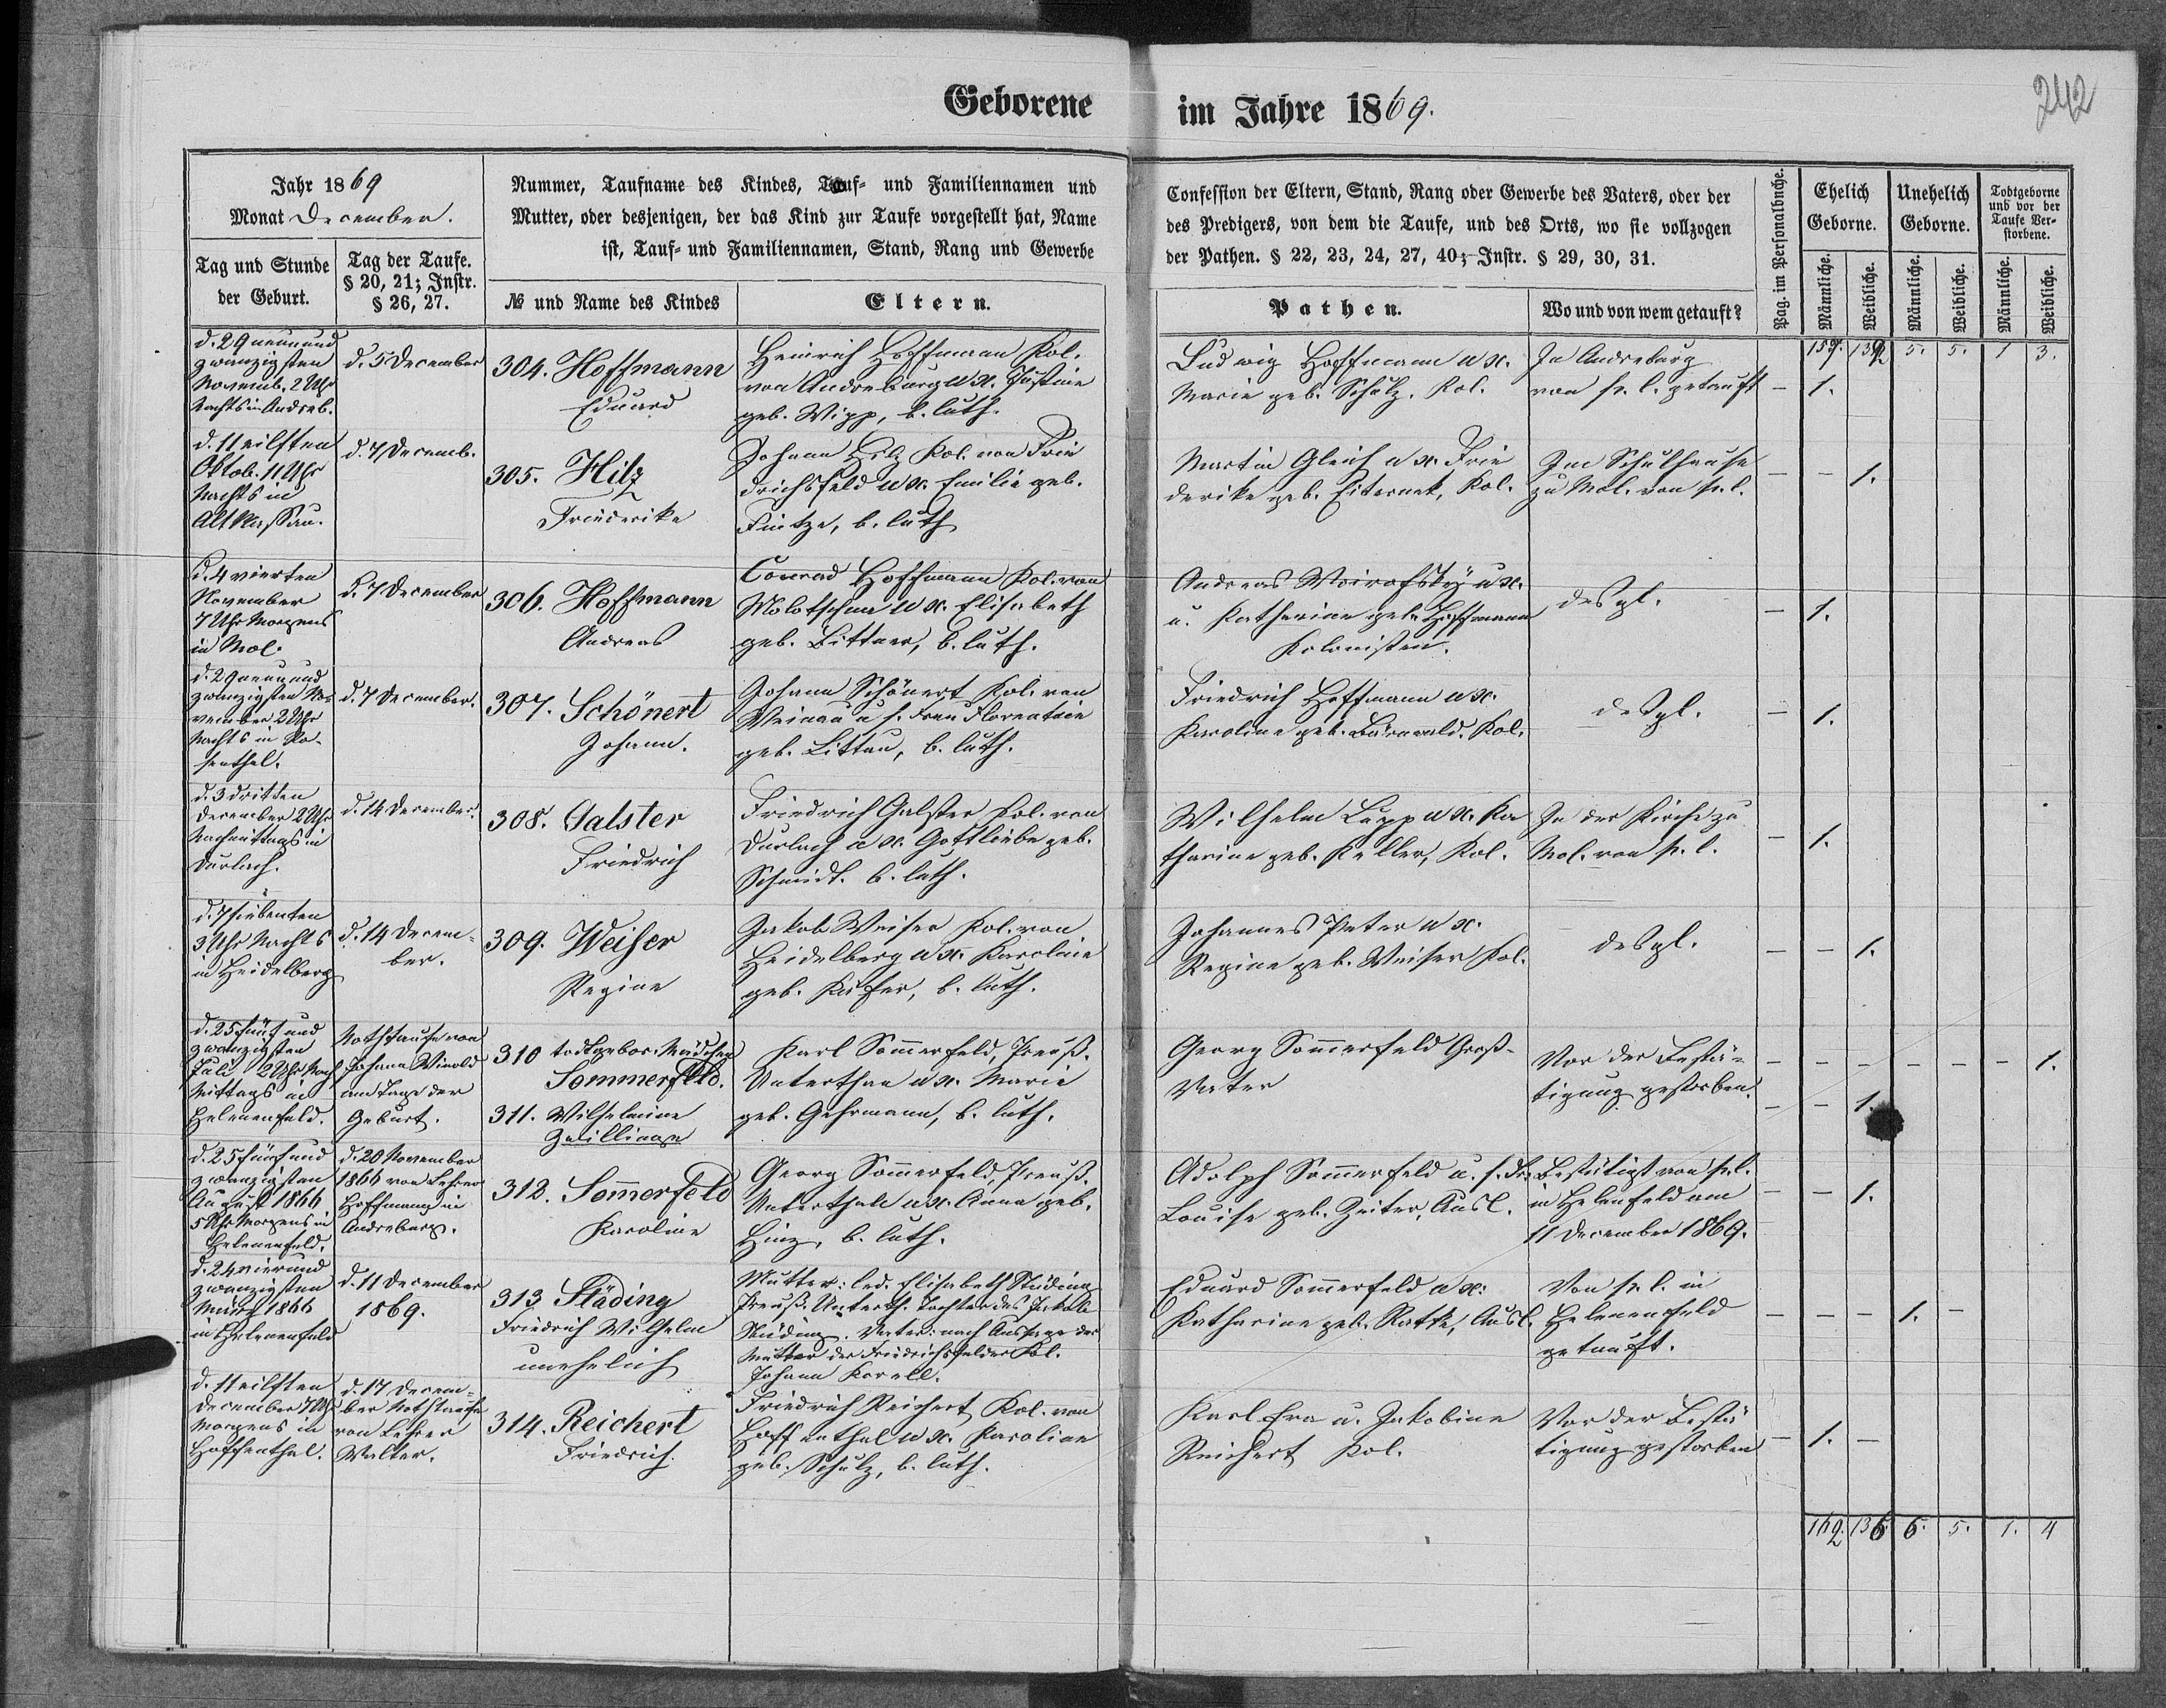 Geborene im Jahre 1869.
242
Jahr 1869
Monat December.
Nummer, Taufname des Kindes, Tauf- und Familiennamen und
Mutter, oder desjenigen, der das Kind zur Taufe vorgestellt hat, Name
ist, Tauf- und Familiennamen, Stand, Rang und Gewerbe
Confession der Eltern, Stand, Rang oder Gewerbe des Vaters, oder der
des Predigers, von dem die Taufe, und des Orts, wo sie vollzogen
der Pathen. § 22, 23, 24, 27, 40; Instr. § 29, 30, 31.
Pag. im Personalbuche.
Ehelich
Geborne.
Unehelich
Geborne.
Todtgeborne
und vor der
Taufe Ver-
storbene.
Tag und Stunde
der Geburt.
Tag der Taufe.
§ 20, 21; Instr.
§ 26, 27.
№ und Name des Kindes
Eltern.
Pathen.
Wo und von wem getauft?
Männliche.
Weibliche.
Männliche.
Weibliche.
Männliche.
Weibliche.
5. 5. 1 3.
d. 29 neunund
zwanzigsten
Novemb. 2 Uhr
Nachts in Andreb.
d. 5 December
304. Hoffmann
Eduard
Heinrich Hoffmann Kol.
von Andreburg u x. Justine
geb. Wipp, b. luth.
Ludwig Hoffmann u x.
Marie geb. Schulz. Kol.
In Andreburg
von p. l. getauft
– 1.
d. 11 eilften
Oktob. 11 Uhr
Nachts in
Alt Nassau.
d. 7 Decemb.
305. Hilz
Friederike
Johann Hilz Kol. von Frie
drichsfeld u x. Emilie geb.
b. luth
Martin Gleich u x. Frie
derike geb. Kol.
Im Schulhause
zu Mol. von p. l.
– – 1.
d. 4 vierten
November
7 Uhr Morgens
in Mol.
d. 7 December
306. Hoffmann
Andreas
Conrad Hoffmann Kol. von
Molotschna u x. Elisabeth
geb. Bittner, b. luth.
Andreas u x.
u. Katharine geb. Hoffmann
Kolonisten.
desgl.
– 1.
d. 29 neunund
zwanzigsten No-
vember 2 Uhr
Nachts in Ro-
senthal.
d. 7 December.
307. Schönert
Johann.
Johann Schönert Kol. von
Weinau u s. Frau Florentine
geb. Littau, b. luth.
Friedrich Hoffmann u x.
Karoline geb. Bärenwald. Kol.
desgl.
– 1.
d. 3 dritten
December 2 Uhr
Nachmittags in
Durlach.
d. 14 December.
308. Galster
Friedrich
Friedrich Galster Kol. von
Durlach u x. Gottliebe geb.
Schmidt. b. luth.
Wilhelm Lupp u x. Ka
tharine geb. Keller, Kol.
In der Kirche zu
Mol. von p. l.
– 1.
d. 7 siebenten
3 Uhr Nachts
in Heidelberg
d. 14 Decem-
ber.
309. Weiser
Regine
Jakob Weiser Kol. von
Heidelberg u x. Karoline
geb. Käfer, b. luth.
Johannes Peter u x.
Regine geb. Weiser Kol.
desgl.
– – 1.
d. 25 fünf und
zwanzigsten
Juli 2 Uhr Nach
Mittags in
Helenenfeld.
Nothtaufe von
Johann
am Tage der
Geburt.
310 todtgebor. Mädchen
Sommerfeld.
311. Wilhelmine
Zwillinge
Karl Sommerfeld, Preuß.
Unterthan u x. Marie
geb. Gehrmann, b. luth.
Georg Sommerfeld Groß-
Vater
Vor der Bestä-
tigung gestorben.
– – – – – – 1.
– – 1.
d. 25 fünfund
zwanzigsten
August 1866
5 Uhr Morgens in
Helenenfeld.
d. 20 November
1866 von Lehrer
Hoffmann in
Andreburg.
312. Sommerfeld
Karoline
Georg Sommerfeld, Preuß.
Unterthan u x. Anna geb.
Hinz, b. luth.
Adolph Sommerfeld u. s. Fr.
Louise geb. Zeiter, Ausl.
Bestätigt von p. l.
in Helenfeld am
11 December 1869.
– – 1.
d. 24 vierund
zwanzigsten
März 1866
in Helenenfeld
d. 11 December
1869.
313 Städing
Friedrich Wilhelm
unehelich
Mutter: led. Elisabeth Städing
Preuß. Unterth. Tochter des Jakob
Städing. Vater: nach Aussage der
Mutter der Friedrichsfelder Kol.
Johann Korell.
Eduard Sommerfeld u x:
Katharine geb. Ratke, Ausl.
Von p. l. in
Helenenfeld
getauft.
– – – 1. –
d. 11 eilften
December 7 Uhr
Morgens in
Hoffenthal.
d. 17 Decem-
ber Nothtaufe
von Lehrer
Walter.
314. Reichert
Friedrich.
Friedrich Reichert Kol. von
Hoffenthal u x. Karoline
geb. Schulz, b. luth.
Karl u. Jakobine
Reichert Kol.
Vor der Bestä
tigung gestorben
– 1. –
136. 6. 5. 1. 4